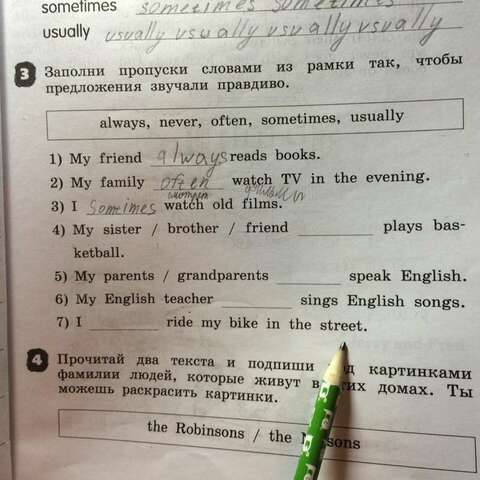 sometimes sometimes sometimes
usually usually usually usually usually
3 Заполни пропуски словами из рамки так, чтобы
предложения звучали правдиво.
always, never, often, sometimes, usually
1) My friend always reads books.
2) My family often watch TV in the evening.
3) I Sometimes watch old films.
4) My sister / brother / friend ________ plays bas-
ketball.
5) My parents / grandparents ________ speak English.
6) My English teacher ________ sings English songs.
7) I ________ ride my bike in the street.
4 Прочитай два текста и подпиши под картинками
фамилии людей, которые живут в этих домах. Ты
можешь раскрасить картинки.
the Robinsons / the